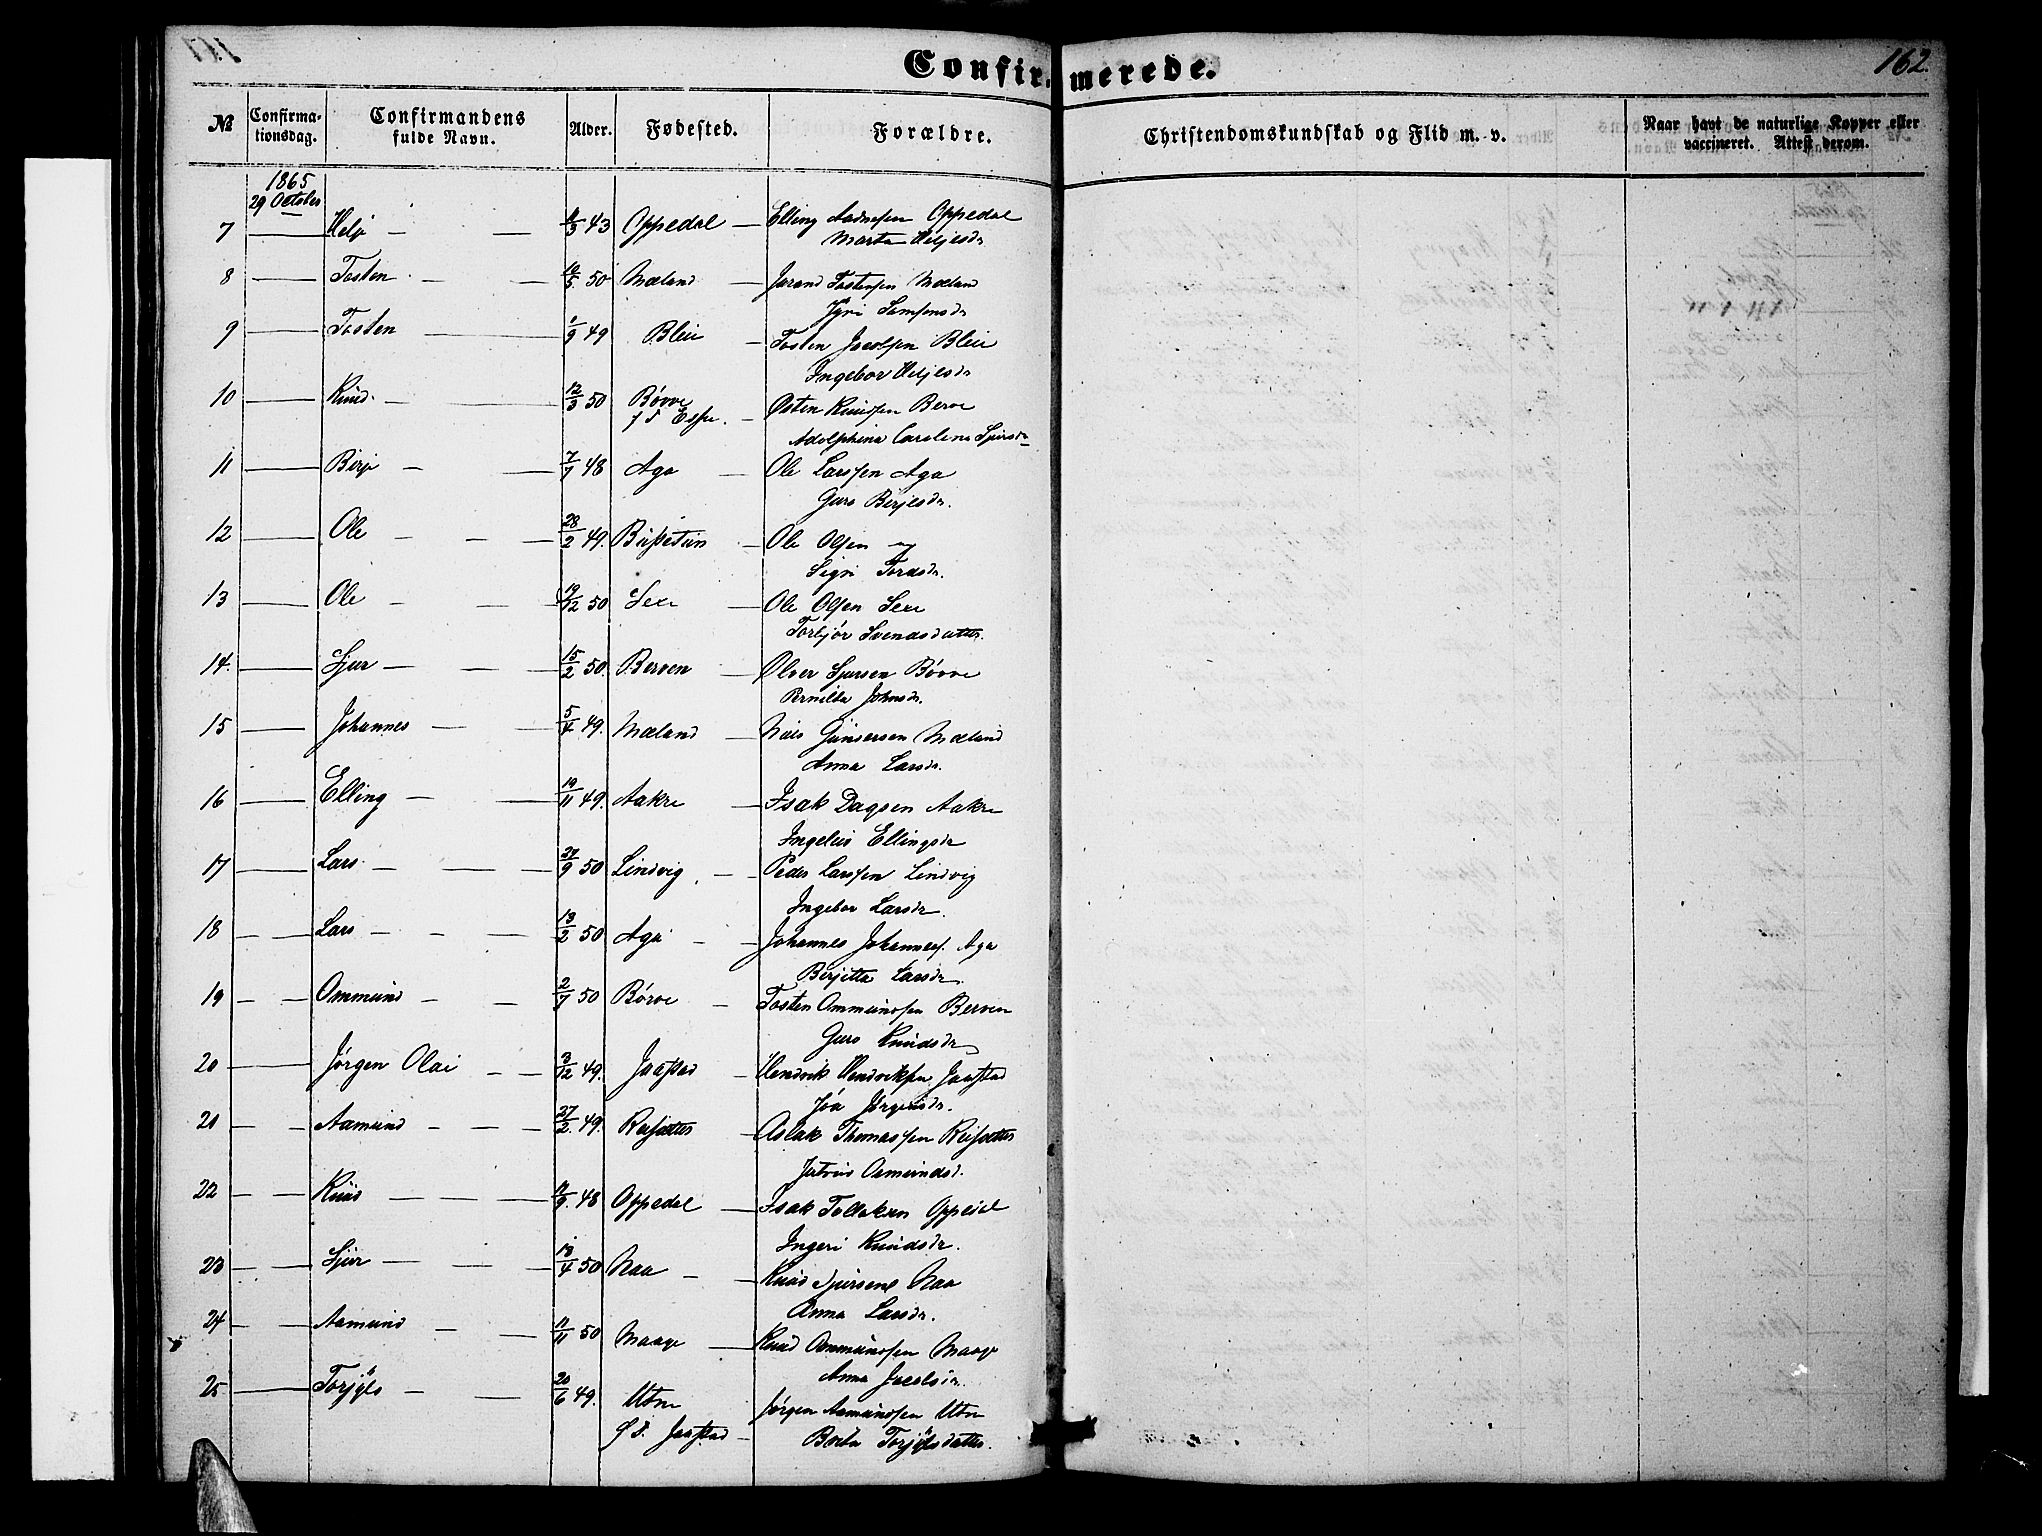 Confirmerede.
162.
№
Confirmationsdag.
Confirmandens fulde Navn.
Alder.
Fødested.
Forældre.
Christendomskundskab og Flid m. v.
Naar havt de naturlige Kopper eller vaccineret. Attest derom.
1865
29 October
7 Helje 43 Oppedal Elling Aadnesen Oppedal
Marta Heljesdr
8 Tosten 50 Mæland Jarand Tostensen Mæland
Sjri Samsonsdr
9 Tosten 1/9 49 Bleie Tosten Jacobsen Bleie
Ingebor Heljesdr
10 Knud 12/3 50 Børve Østen Knudsen Berve
f S Espe.
Adolphina Carolina Sjursdr
11 Birje 7/7 48 Aga Ole Larssen Aga
Guro Birjesdr.
12 Ole 28/2 49. Ole Olsen
Sigri Tordsdr.
13 Ole 19/12 50 Sexe Ole Olsen Sexe
Torbjør Svendsdatter.
14. Sjur 15/2 50. Berven Olver Sjursen Børve
Pernilla Johnsdr.
15 Johannes 5/4 49. Mæland Nils Gunnersen Mæland
Anna Larsdr.
16 Elling 19/11 49. Aakre Isak Dagsen Aakre
Ingelev Ellingsdr
17 Lars 27/9 50 Lindvig Peder Larssen Lindvig
Ingebor Larsdr.
18 Lars 13/2 50 Aga Johannes Johanness. Aga
Birjitta Larsdr.
19 Ommund 2/7 50 Børve Tosten Ommundsen Berven
Guro Knudsdr
20 Jørgen Olai 3/12 49. Jaastad Hendrik Hendriksen Jaastad
Jørgensdr.
21 Aamund 27/2. 49. Reisæter Aslak Thomassen Reisæter
Osmundsd.
22 Knud 48 Oppedal Isak Tollaksen Oppedal
Ingeri Knudsdr.
23 Sjur 18/4 50 Naa Knud Sjursene Naa
Anna Larsdr.
24 Aamund 11/11 50 Maage Knud Ommundsen Maage
Anna Jacobsdr.
25 Torjyls 20/6 49. Utne Jørgen Aamundsen Utne
f S. Jaastad
Brita Torjylsdatter.